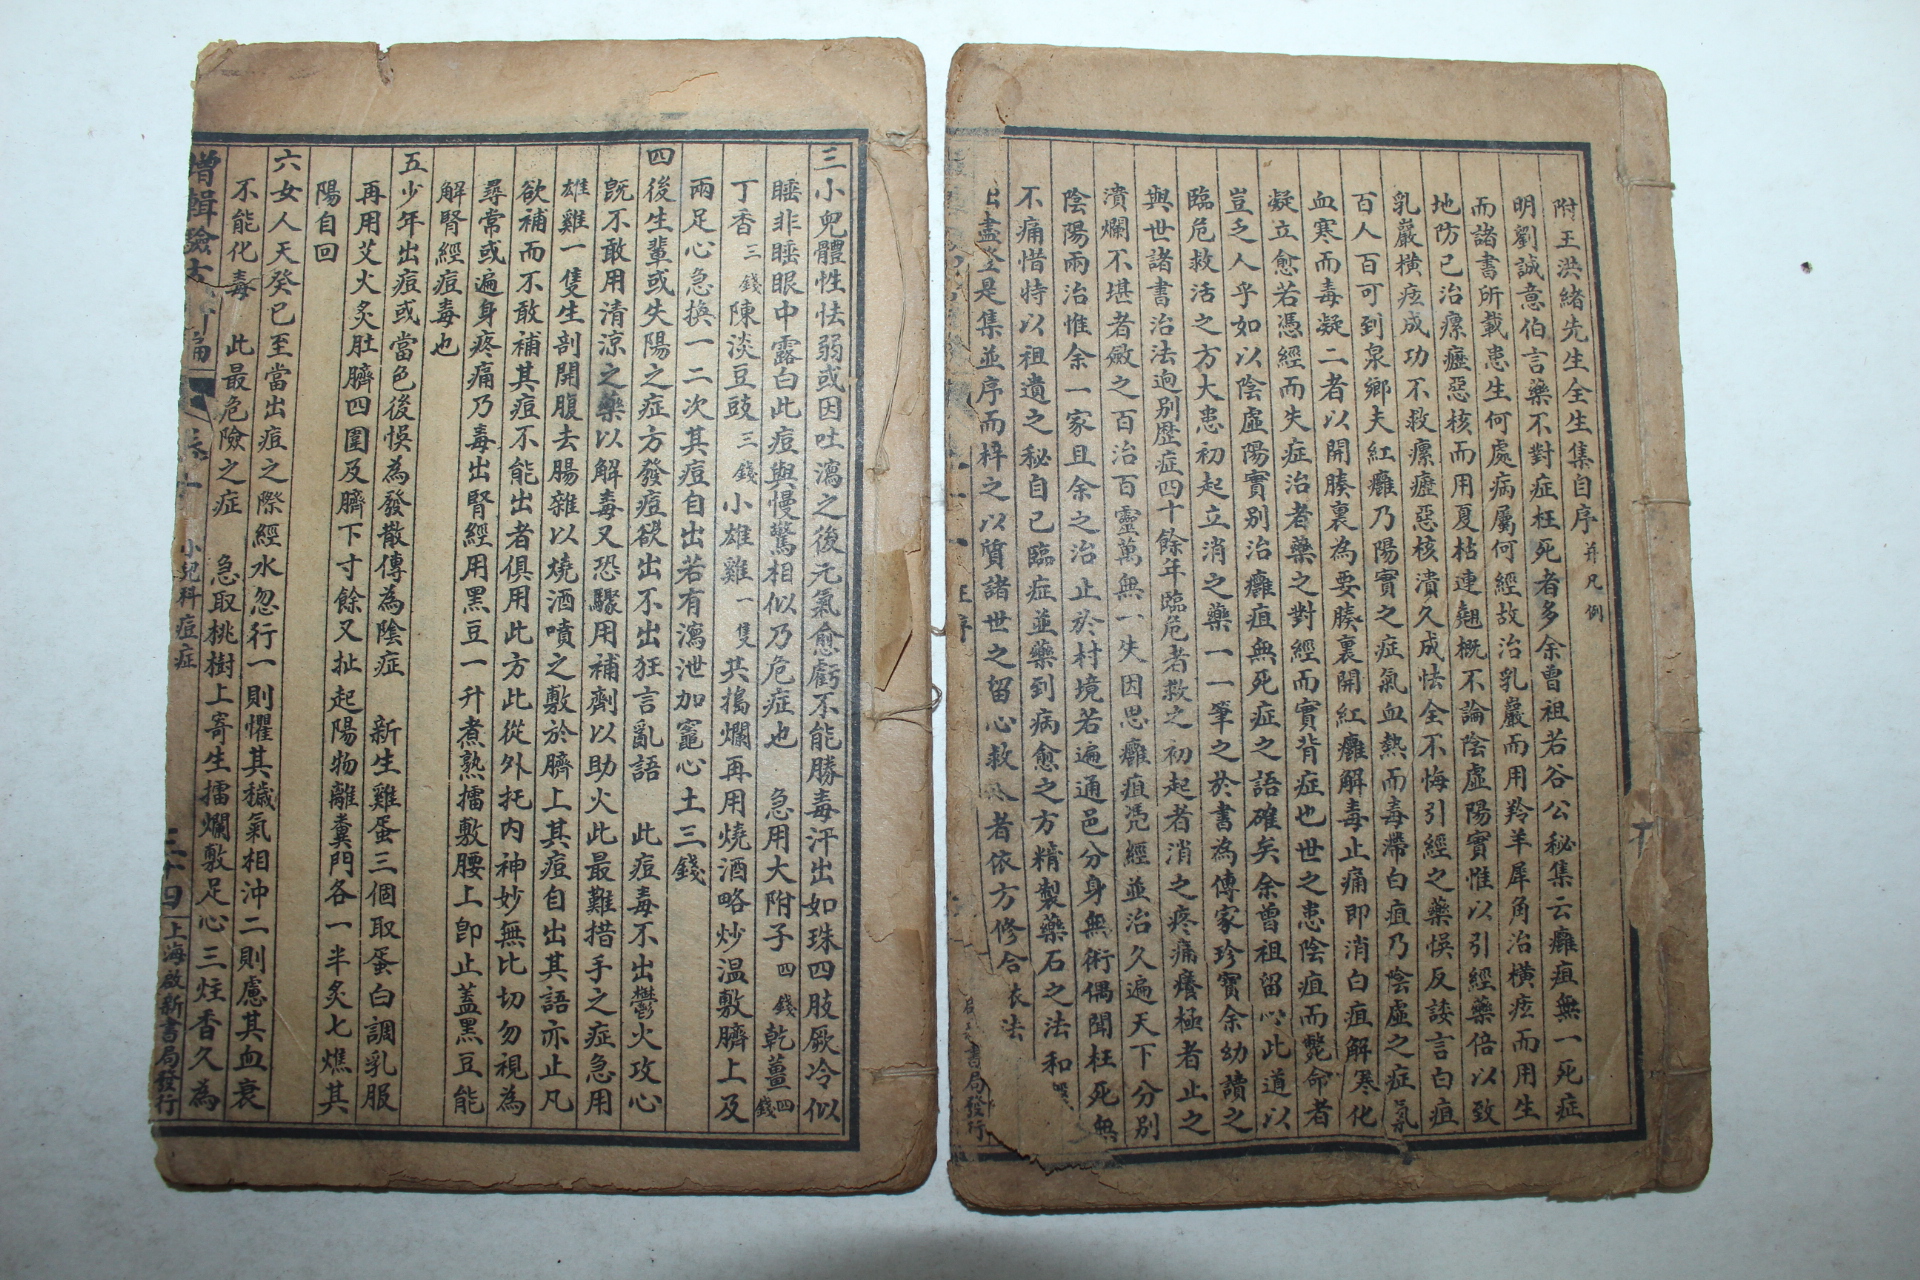 附王洪緒先生全生集自序 并凡例
明劉誠意伯言藥不對症枉死者多余曾祖若谷公秘集云癰疽無一死症
而諸書所載患生何處病屬何經故治乳巖而用羚羊犀角治橫痃而用生
地防已治瘰癧惡核而用夏枯連翹概不論陰虛陽實惟以引經藥倍以致
乳巖橫痃成功不救瘰癧惡核潰久成怯全不悔引經之藥悞反諉言白疽
百人百可到泉鄉夫紅癰乃陽實之症氣血熱而毒滯白疽乃陰虛之症氣
血寒而毒凝二者以開腠裏為要腠裏開紅癰解毒止痛即消白疽解寒化
凝立愈若憑經而失症治者藥之對經而實背症也世之患陰疽而斃命者
豈乏人乎如以陰虛陽實別治癰疽無死症之語確矣余曾祖留心此道以
臨危救活之方大患初起立消之藥一一筆之於書為傳家珍寶余幼讀之
與世諸書治法迥別歷症四十餘年臨危者救之初起者消之疼痛癢極者止之
潰爛不堪者斂之百治百靈萬無一失因思癰疽憑經並治久遍天下分別
陰陽兩治惟余一家且余之治止於村境若遍通邑分身無術偶聞枉死無
不痛惜特以祖遺之秘自已臨症並藥到病愈之方精製藥石之法和
盡登是集並序而梓之以質諸世之留心救 者依方修合依法
書局發行
三小兒體性怯弱或因吐瀉之後元氣愈虧不能勝毒汗出如珠四肢厥冷似
睡非睡眼中露白此痘與慢驚相似乃危症也 急用大附子四錢乾薑四錢
丁香三錢陳淡豆豉三錢小雄雞一隻共搗爛再用燒酒略炒温敷臍上及
兩足心急換一二次其痘自出若有瀉泄加竈心土三錢
四後生輩或失陽之症方發痘欲出不出狂言亂語 此痘毒不出鬱火攻心
既不敢用清涼之藥以解毒又恐驟用補劑以助火此最難措手之症急用
雄雞一隻生剖開腹去腸雜以燒酒噴之敷於臍上其痘自出其語亦止凡
欲補而不敢補其痘不能出者俱用此方此從外托內神妙無比切勿視為
尋常或遍身疼痛乃毒出腎經用黑豆一升煮熟擂敷腰上卽止蓋黑豆能
解腎經痘毒也
五少年出痘或當色後悞為發散傳為陰症 新生雞蛋三個取蛋白調乳服
再用艾火炙肚臍四圍及臍下寸餘又扯起陽物離糞門各一半炙七燋其
陽自回
六女人天癸已至當出痘之際經水忽行一則懼其穢氣相沖二則慮其血衰
不能化毒 此最危險之症 急取桃樹上寄生擂爛敷足心三炷香久為
增輯驗 編 小兒科痘症 三十四 上海啟新書局發行